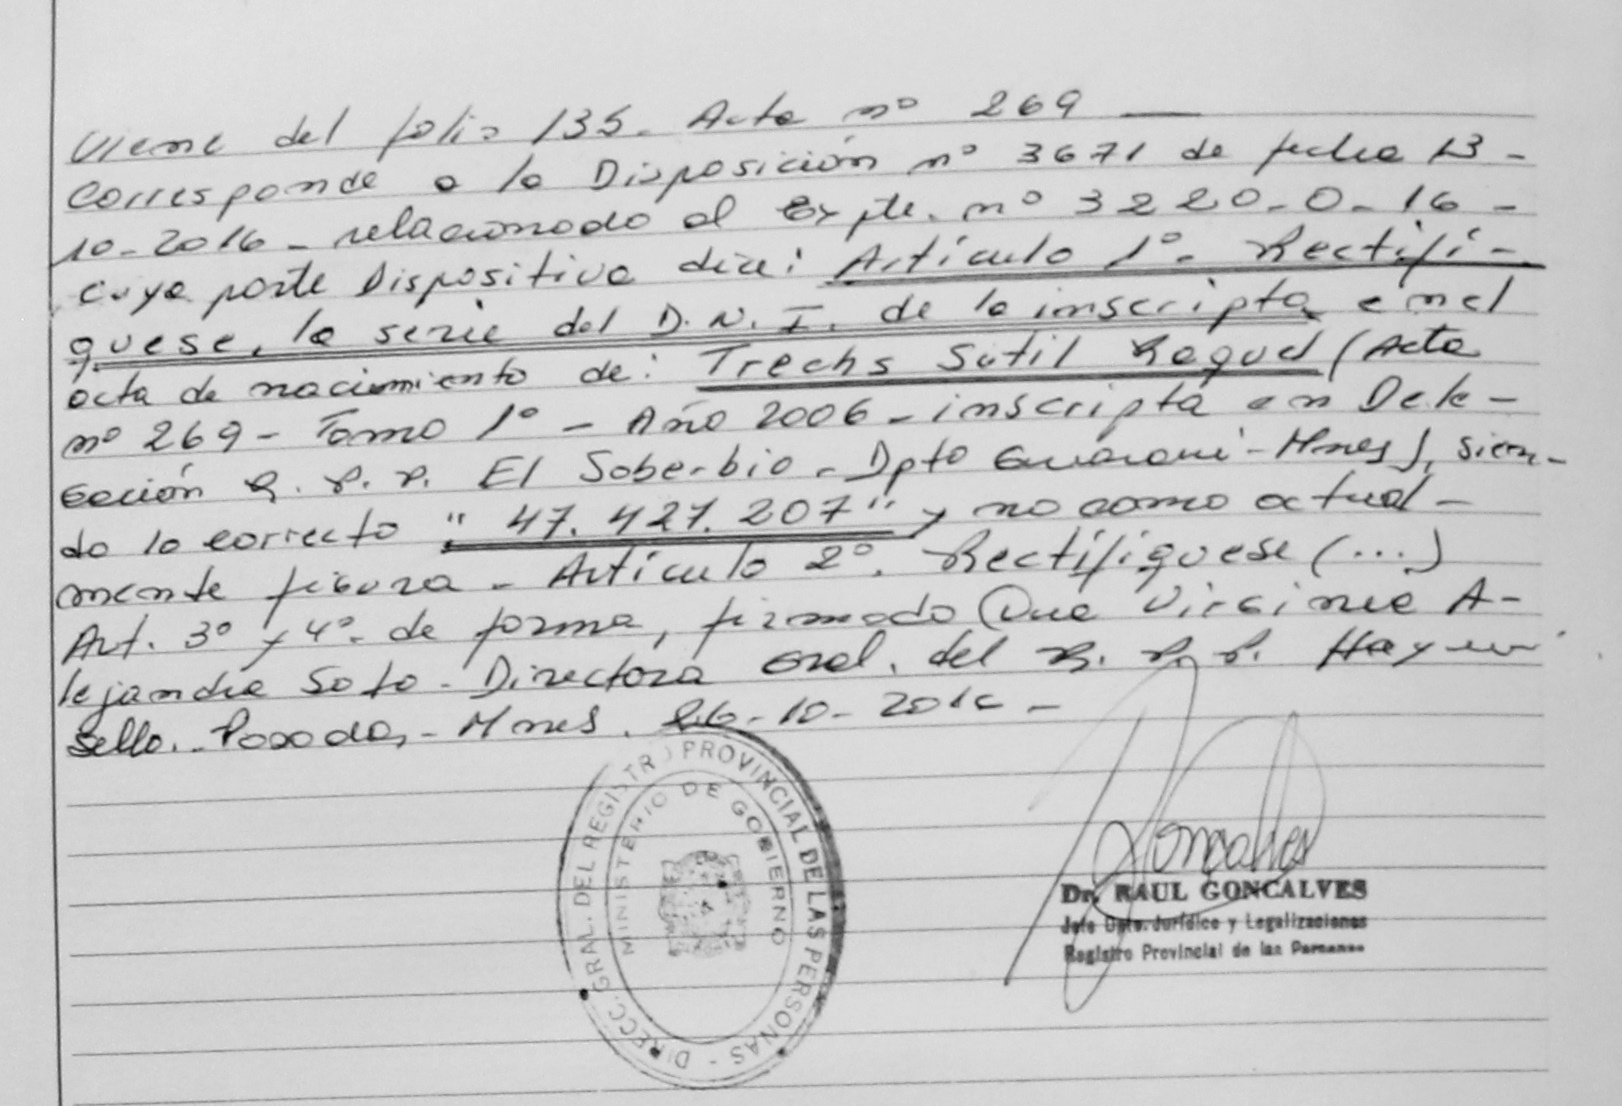 Viene del folio 135. Acta nº 269 —
Corresponde a la Disposición nº 3671 de fecha 13-
10-2016 - relacionado al Expte. nº 3220-O-16 -
Cuya parte Dispositiva dice: Artículo 1º. Rectifí-
quese, la serie del D.N.I. de la inscripta en el
acta de nacimiento de: Trechs Sutil Raquel (Acta
nº 269 - Tomo 1º - Año 2006 - inscripta en Dele-
gación R.P.P. El Soberbio - Dpto Guaraní - Mnes), sien-
do lo correcto "47.427.207" y no como actual-
mente figura - Artículo 2º. Rectifíquese (...)
Art. 3º y 4º. de forma, firmado Dra Virginia A-
lejandra Soto - Directora Gral. del R.P.P. Hay un
Sello. - Posadas, - Mnes. 26-10-2016 -
DIRECC. GRAL. DEL REGISTRO PROVINCIAL DE LAS PERSONAS -
MINISTERIO DE GOBIERNO
Goncalves
Dr. RAUL GONCALVES
Jefe Dpto. Jurídico y Legalizaciones
Registro Provincial de las Personas